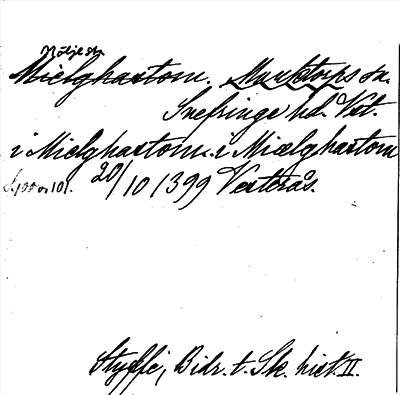 Mölje sk
Mielghaxtom. Munktorps sn.
Snefringe hd. Vst.
i Mielghaxtom. i Miælghaxtom
s. 100 o. 101. 20/10 1399 Vesterås.
Styffe, Bidr. t. Sk. hist. II.